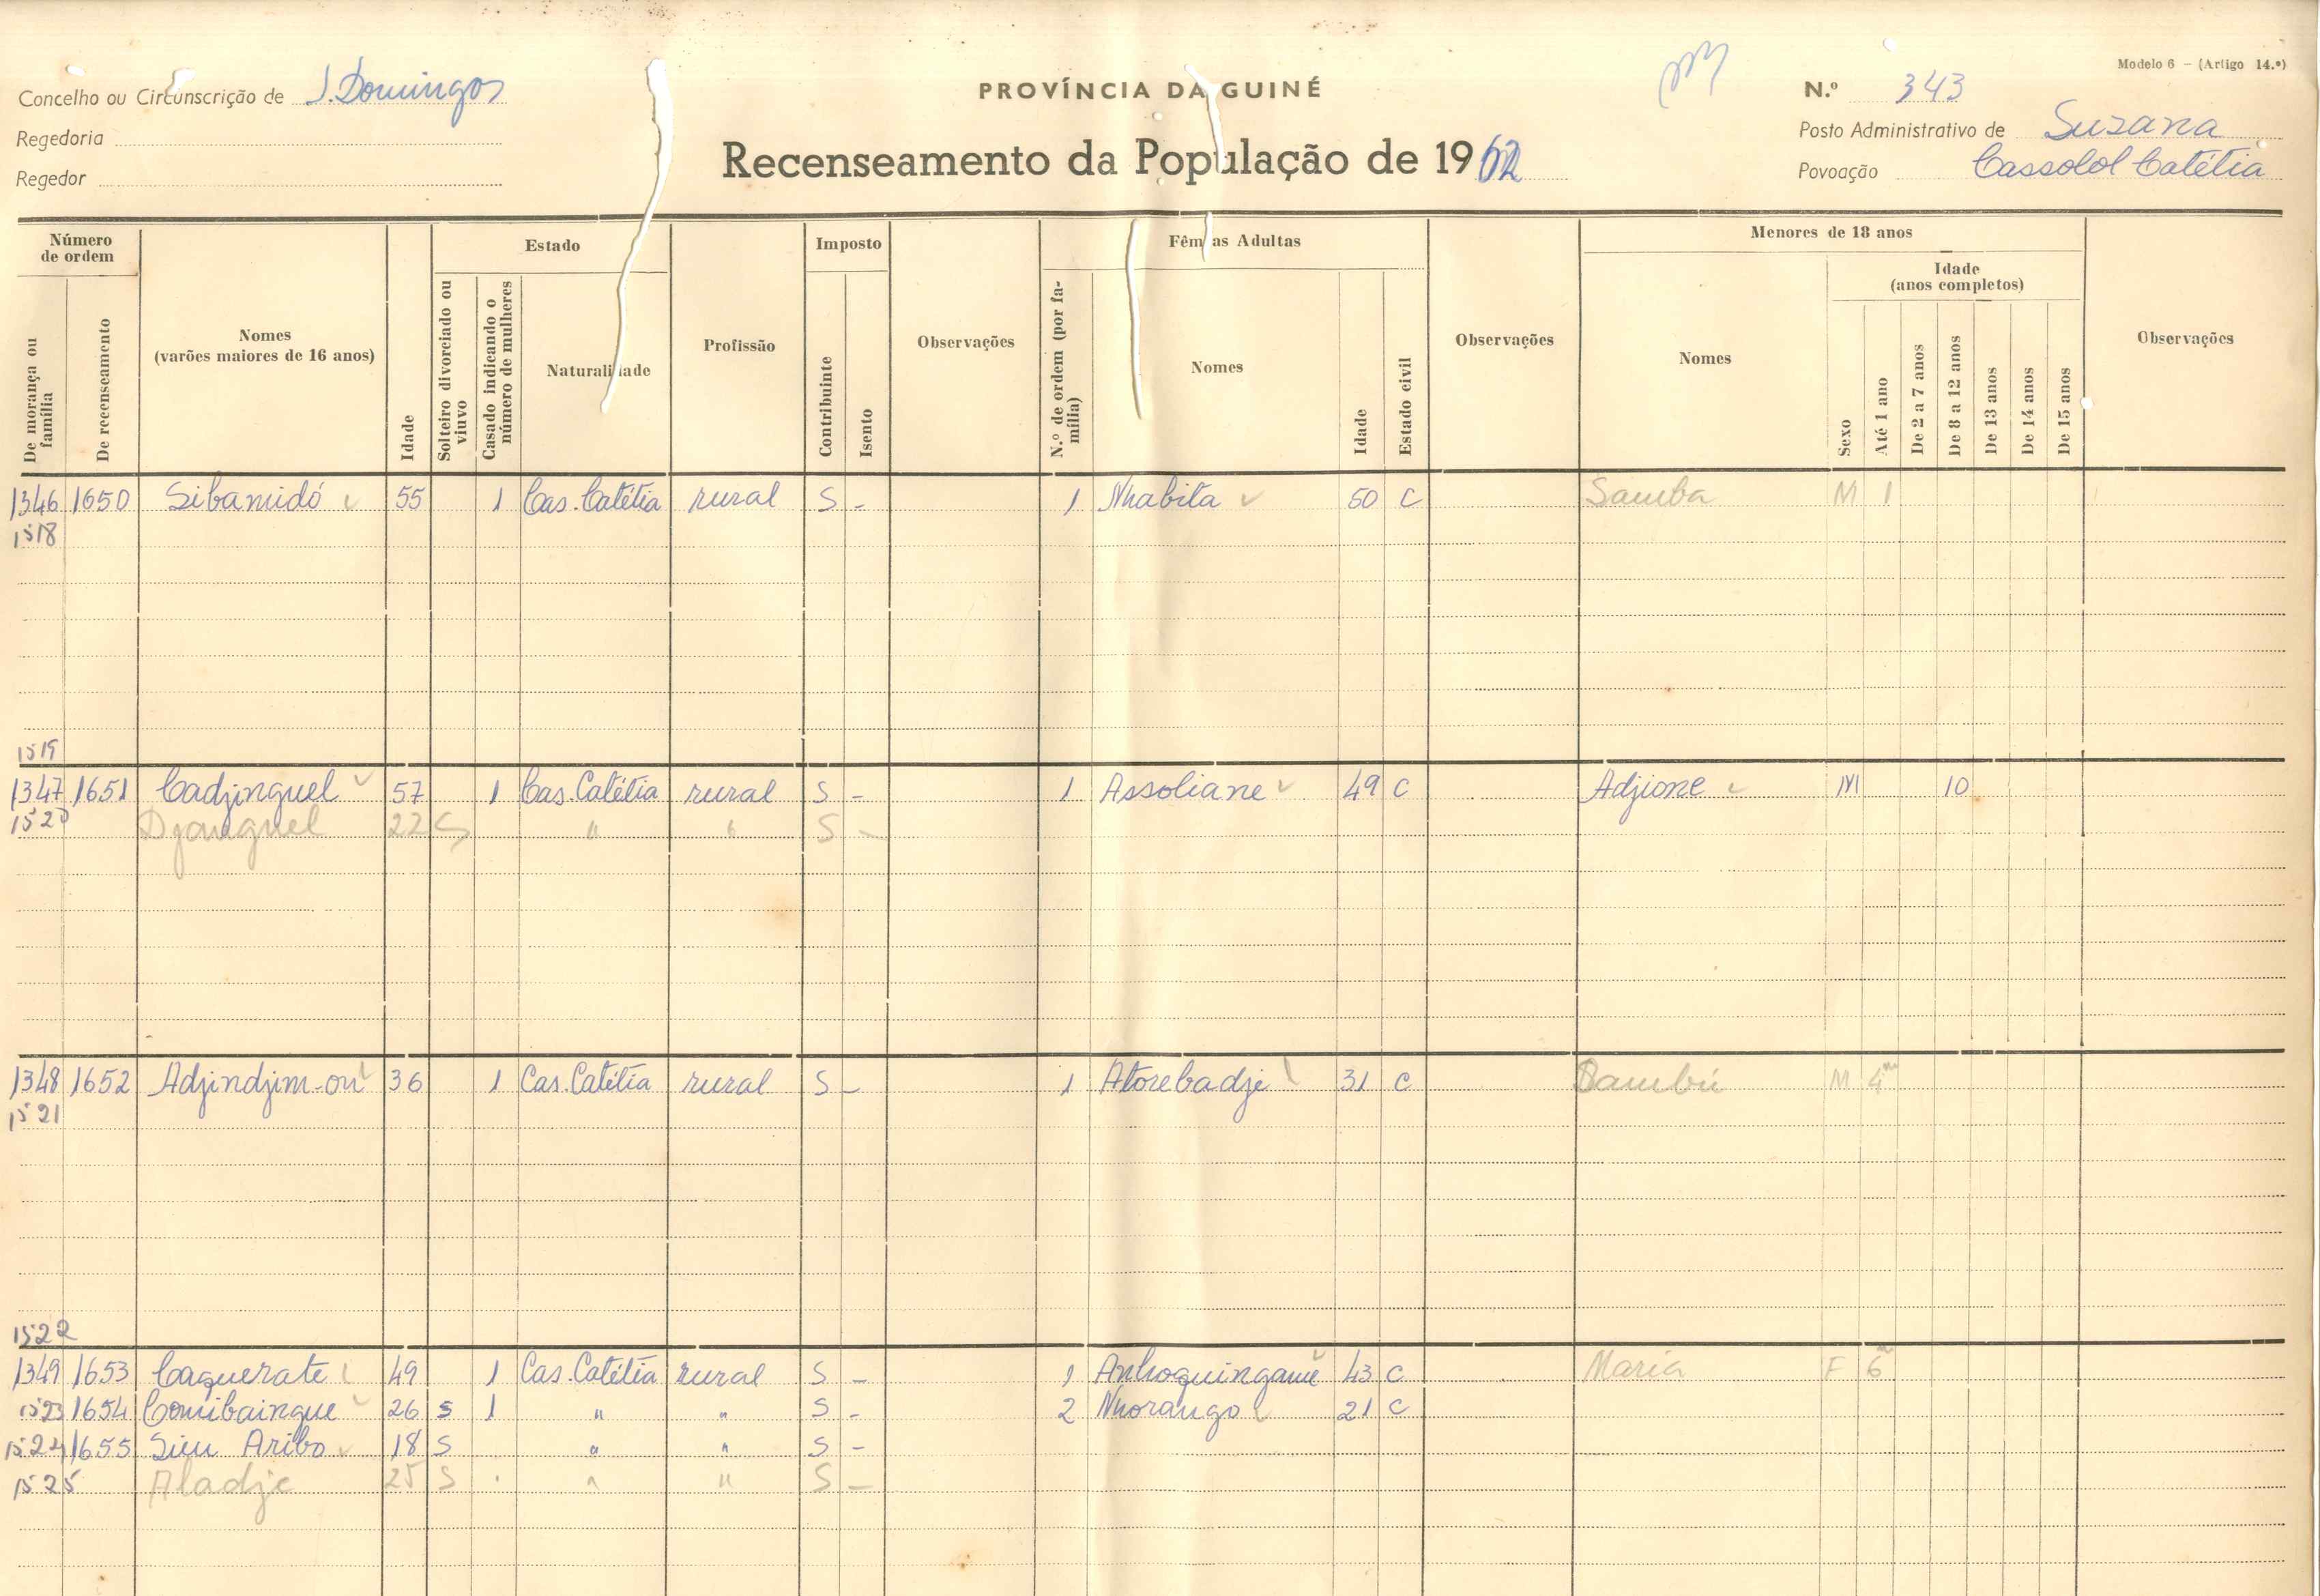 Modelo 6 – (Artigo 14.º)
Concelho ou Circunscrição de S. Domingos
PROVÍNCIA DA GUINÉ
N.º 343
Regedoria
Posto Administrativo de Suzana
Regedor
Recenseamento da População de 1962
Povoação Cassolol Catétia
Número de ordem
De morança ou família
De recenseamento
Nomes
(varões maiores de 16 anos)
Idade
Estado
Solteiro divorciado ou viuvo
Casado indicando o número de mulheres
Naturalidade
Profissão
Imposto
Contribuinte
Isento
Observações
Fêmeas Adultas
N.º de ordem (por família)
Nomes
Idade
Estado civil
Observações
Menores de 18 anos
Nomes
Sexo
Idade
(anos completos)
Até 1 ano
De 2 a 7 anos
De 8 a 12 anos
De 13 anos
De 14 anos
De 15 anos
Observações
1346 1650 Sibamidó 55 1 Cas. Catétia rural S - 1 Nhabita 50 C Samba M 1
1518
1519
1347 1651 Cadjinguel 57 1 Cas. Catétia rural S - 1 Assoliane 49 C Adjione M 10
1520 Djanguel 22 S " " S -
1348 1652 Adjindjim-on 36 1 Cas. Catétia rural S - 1 Atorebadje 31 C Bambú M 4m
1521
1522
1349 1653 Caquerate 49 1 Cas. Catétia rural S - 1 43 C Maria F 6m
1523 1654 Combaingue 26 S 1 " " S - 2 Nhorango 21 C
1524 1655 Siu Aribo 18 S " " S -
1525 Aladje 25 S " " S -